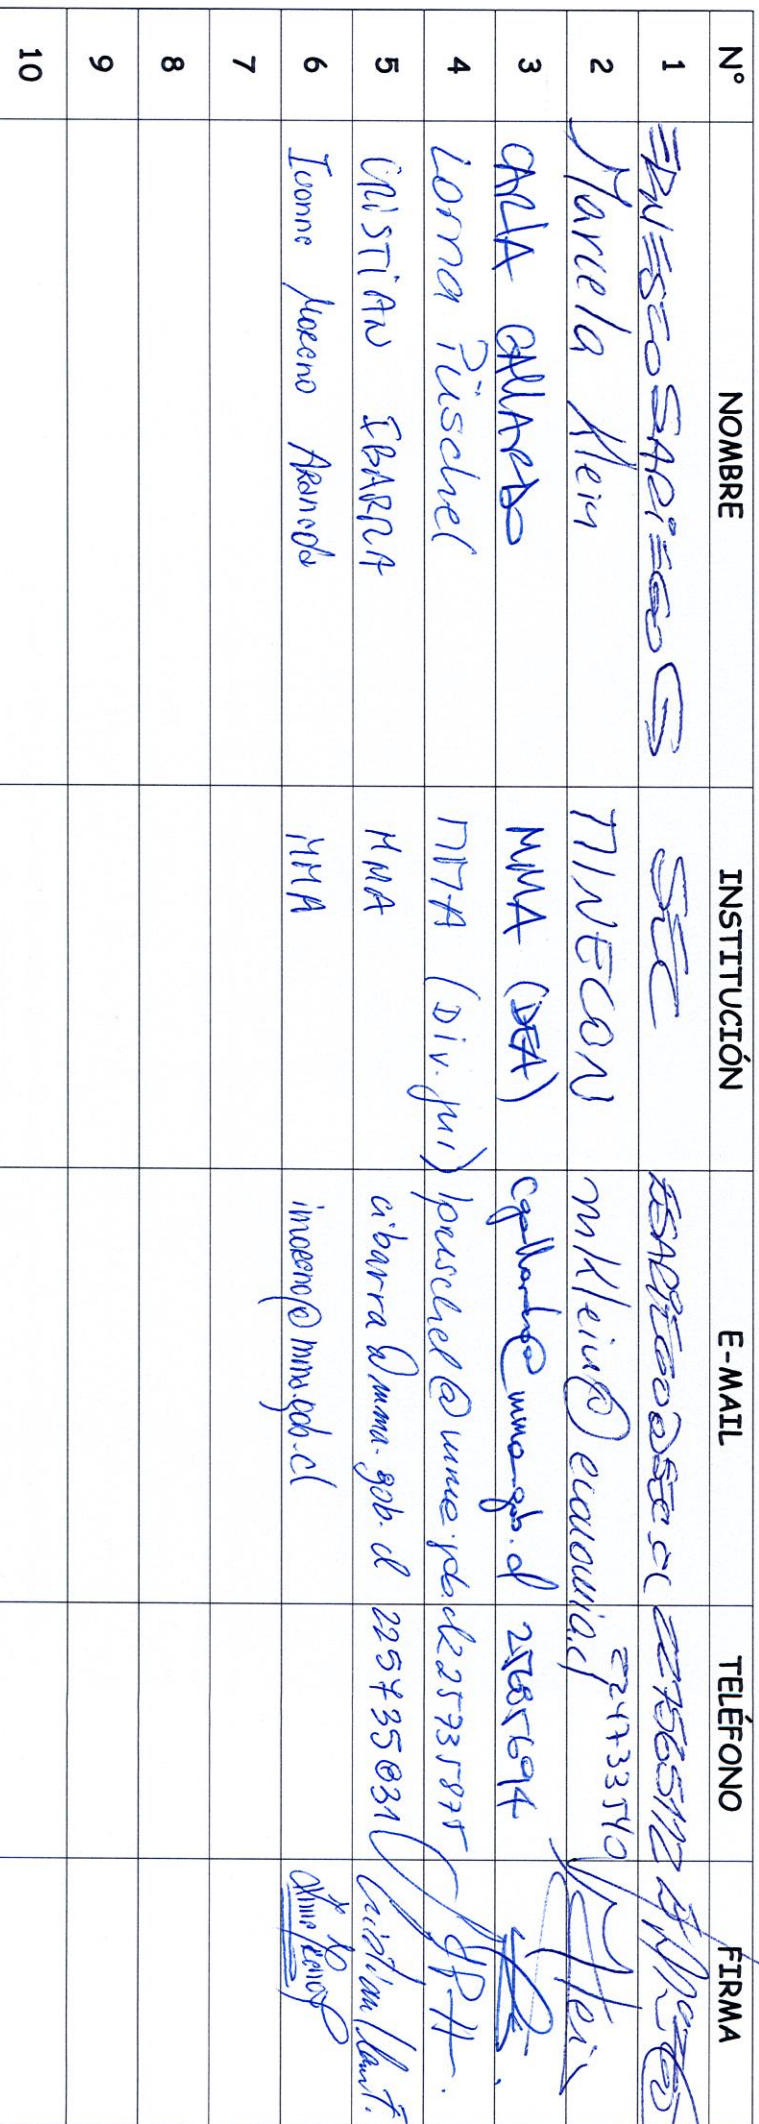 N° NOMBRE INSTITUCIÓN E-MAIL TELÉFONO FIRMA
1 ERNESTO SARIEGO G SEC 227565112
2 Marcela Klein MINECON mklein@economia.cl 224733540
3 CARLA GALLARDO MMA (DEA) cgallardo@mma.gob.cl 25735694
4 Lorna Püschel MMA (Div. jur) lpuschel@mma.gob.cl 225735875
5 CRISTIAN IBARRA MMA cibarra@mma.gob.cl 225735831
6 Ivonne Moreno Araneda MMA imoreno@mma.gob.cl
7
8
9
10